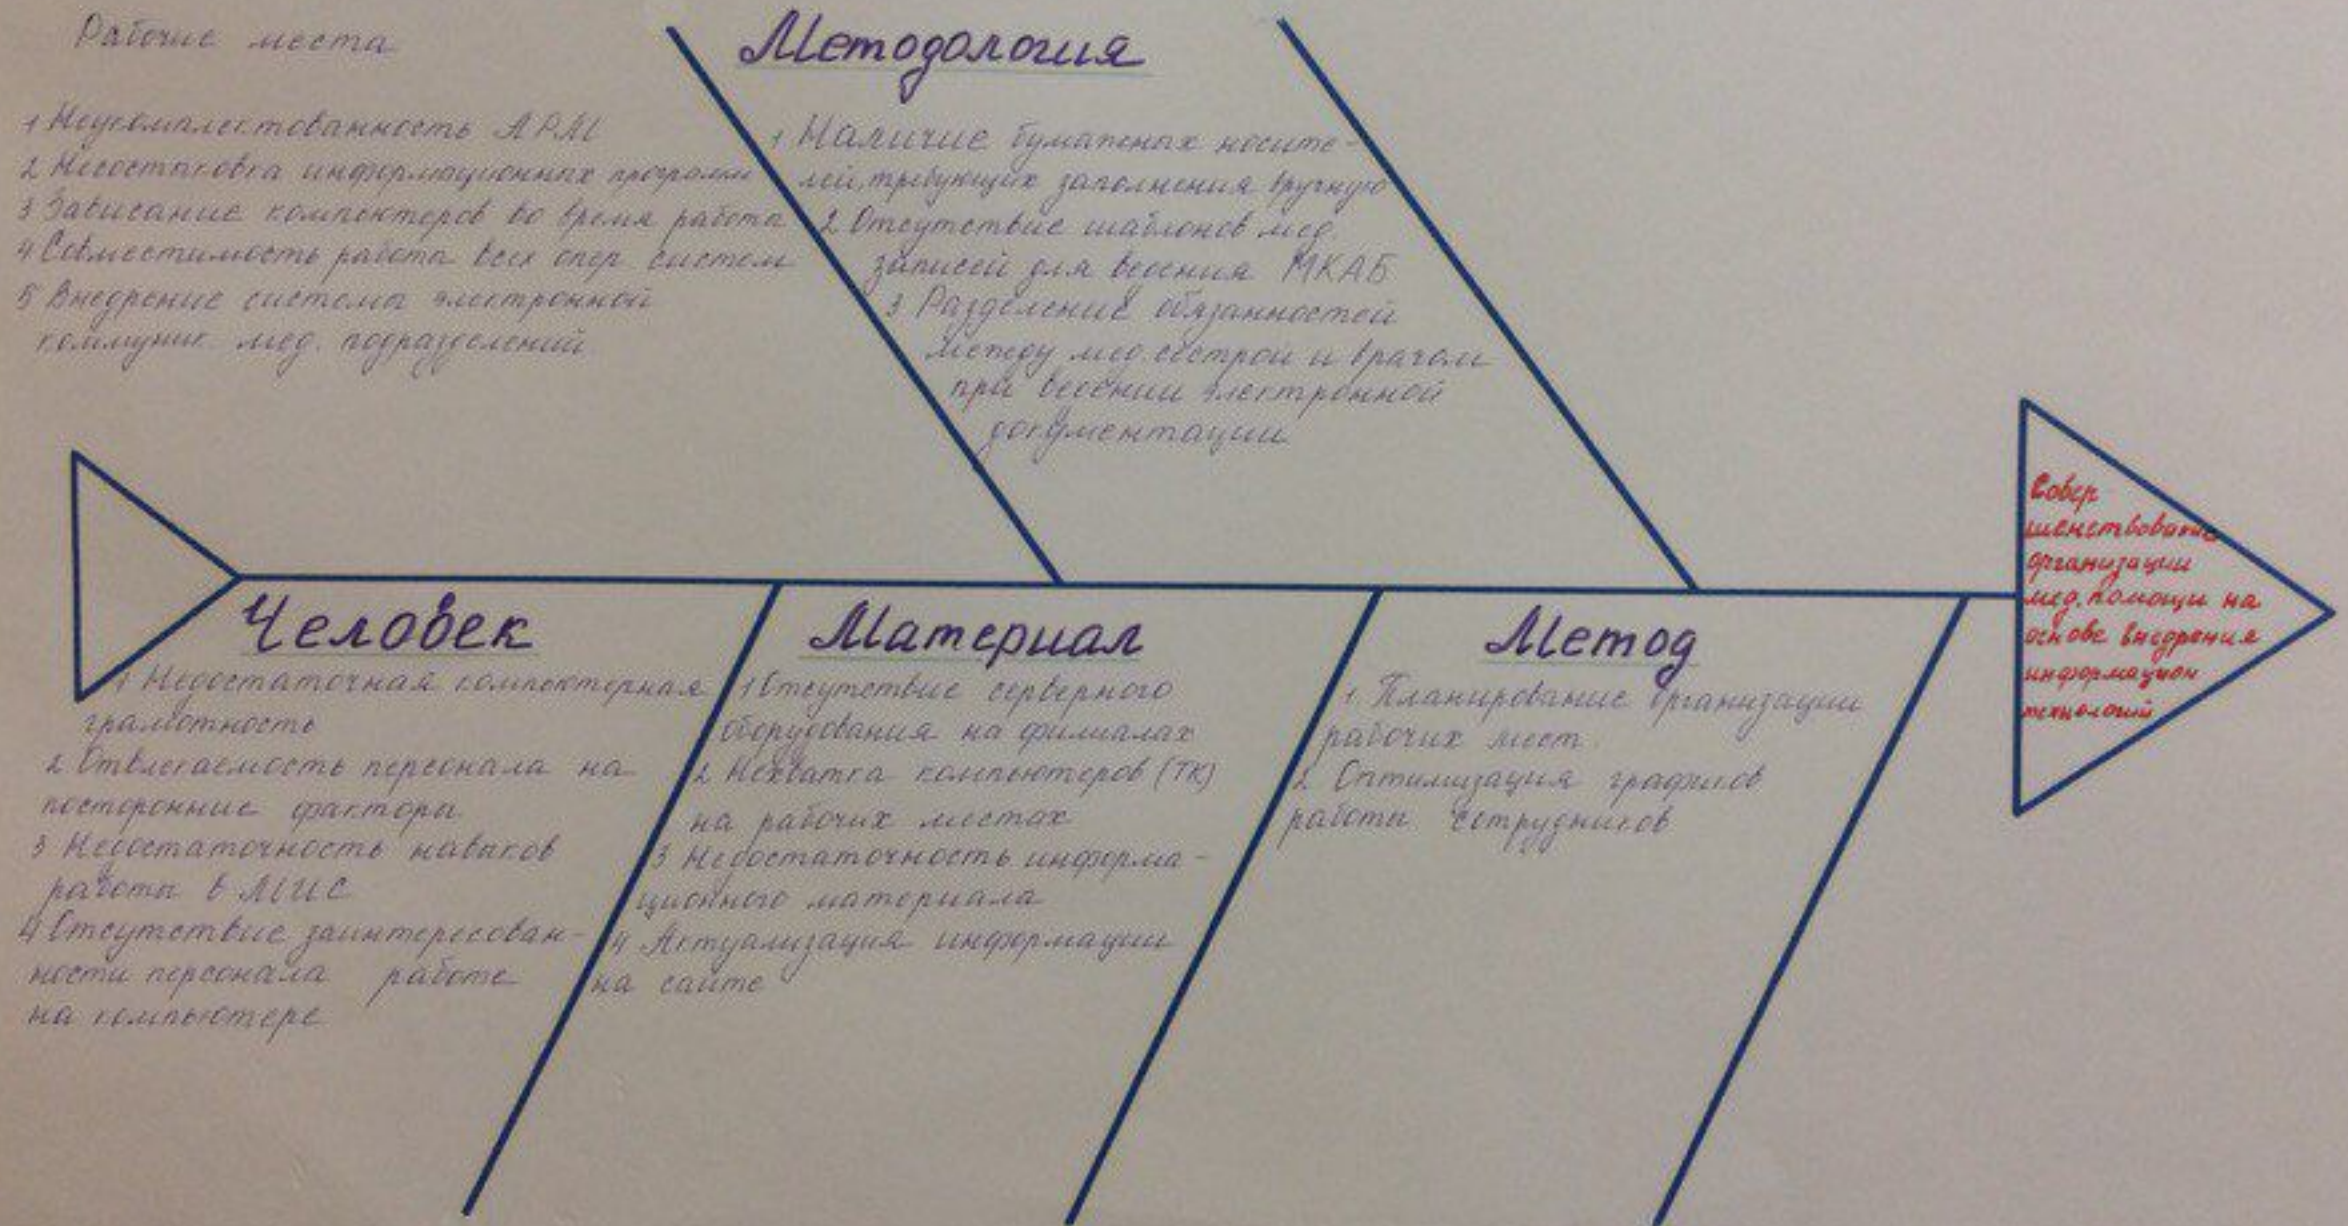 Рабочие места
1 Неукомплектованность АРМ
2 Несостыковка информационных программ
3 Зависание компьютеров во время работы
4 Совместимость работы всех опер. систем
5 Внедрение системы электронной
коммуник. мед. подразделений
Методология
1 Наличие бумажных носите-
лей, требующих заполнения вручную
2 Отсутствие шаблонов мед.
записей для ведения МКАБ
3 Разделение обязанностей
между мед. сестрой и врачом
при ведении электронной
документации
Человек
1 Недостаточная компьютерная
грамотность
2 Отвлекаемость персонала на
посторонние факторы
3 Недостаточность навыков
работы в МИС
4 Отсутствие заинтересован-
ности персонала работе
на компьютере
Материал
1 Отсутствие серверного
оборудования на филиалах
2 Нехватка компьютеров (ТК)
на рабочих местах
3 Недостаточность информа-
ционного материала
4 Актуализация информации
на сайте
Метод
1. Планирование организации
рабочих мест.
2 Оптимизация графиков
работы сотрудников
Совер
шенствование
организации
мед. помощи на
основе внедрения
информацион
технологий